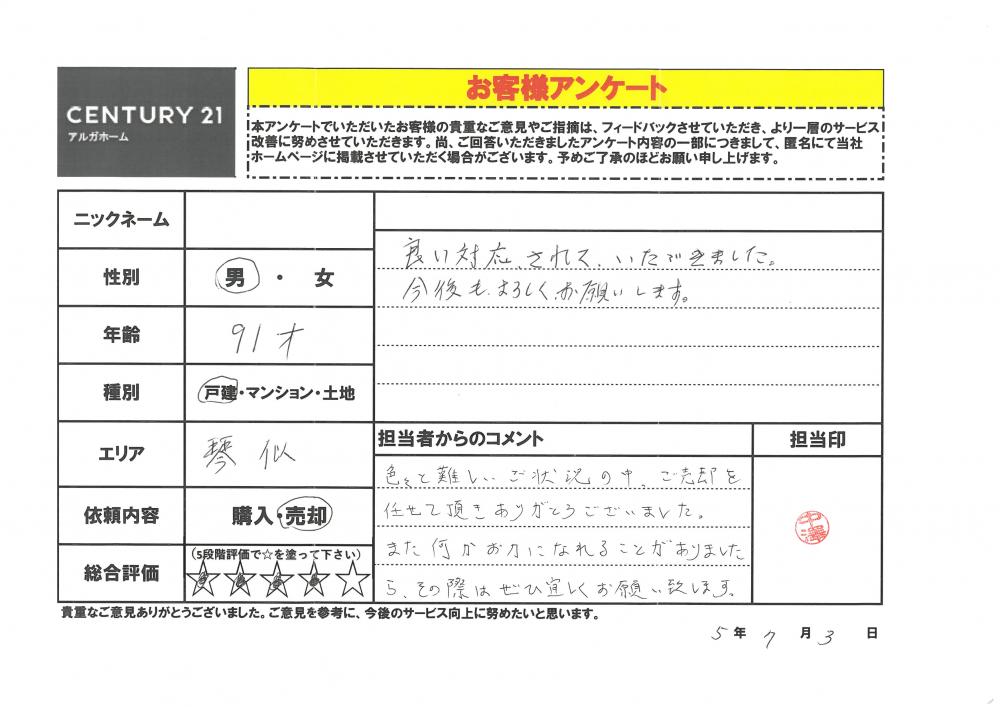 CENTURY 21
アルガホーム
お客様アンケート
本アンケートでいただいたお客様の貴重なご意見やご指摘は、フィードバックさせていただき、より一層のサービス
改善に努めさせていただきます。尚、ご回答いただきましたアンケート内容の一部につきまして、匿名にて当社
ホームページに掲載させていただく場合がございます。予めご了承のほどお願い申し上げます。
ニックネーム
性別
男 ・ 女
年齢
91才
種別
戸建・マンション・土地
エリア
琴似
依頼内容
購入・売却
総合評価
(5段階評価で☆を塗って下さい)
良い対応、されて、いただきました。
今後も、よろしく、お願いします。
担当者からのコメント
担当印
色々と難しいご状況の中、ご売却を
任せて頂きありがとうございました。
また何かお力になれることがありました
ら、その際はぜひ宜しくお願い致します。
中澤
貴重なご意見ありがとうございました。ご意見を参考に、今後のサービス向上に努めたいと思います。
5年 7月 3日